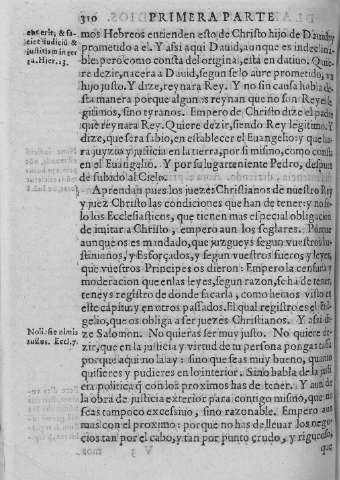 310 PRIMERA PARTE
mos Hebreos entienden esto de Christo hijo de Dauid, y
prometido a el. Y assi aqui Dauid, aunque es indeclina
ble: pero como consta del original, està en datiuo. Quie
re dezir, nacera a Dauid, segun se lo aure prometido, vn
hijo justo. Y dize, reynara Rey. Y no sin causa habla de
sta manera porque algunos reynan que no son Reyes le
gitimos, sino tyranos. Empero de Christo dize el padre
que reynara Rey. Quiere dezir, siendo Rey legitimo. Y
dize, que sera sabio, en establecer el Euangelio: y que ha
ra juyzio y justicia en la tierra, por si mismo, como consta
en el Euangelio. Y por su lugarteniente Pedro, despues
de subido al Cielo.
Aprendan pues los juezes Christianos de nuestro Rey
y juez Christo las condiciones que han de tener: y no so
lo los Ecclesiasticos, que tienen mas especial obligacion
de imitar a Christo, empero aun los seglares. Porque
aunque os es mandado, que juzgueys segun vuestros Iu
stinianos, y Esforçados, y segun vuestros fueros y leyes,
que vuestros Principes os dieron: Empero la censura y
moderacion que en las leyes, segun razon, se ha de tener,
teneys registro de donde sacarla, como hemos visto en
este capitu. y en otros passados. El qual registro es el Euã
gelio, que os obliga a ser juezes Christianos. Y assi di
ze Salomon. No quieras ser muy justo. No quiere de-
zir, que en la justicia y virtud de tu persona pongas tassa
porque aqui no la ay: sino que seas muy bueno, quanto
quisieres y pudieres en lo interior. Sino habla de la justi
cia politica q̃ con los proximos has de tener. Y aun de
la obra de justicia exterior para contigo mismo, que no
seas tampoco excessiuo, sino razonable. Empero aun
mas con el proximo: porque no has de lleuar los nego-
cios tan por el cabo, y tan por punto crudo, y riguroso,
que
ent erit, & fa-
ciet iudiciũ &
justitiam in ter
ra. Hier. 23.
Noli fie ri mis
iustus. Eccl. 7.